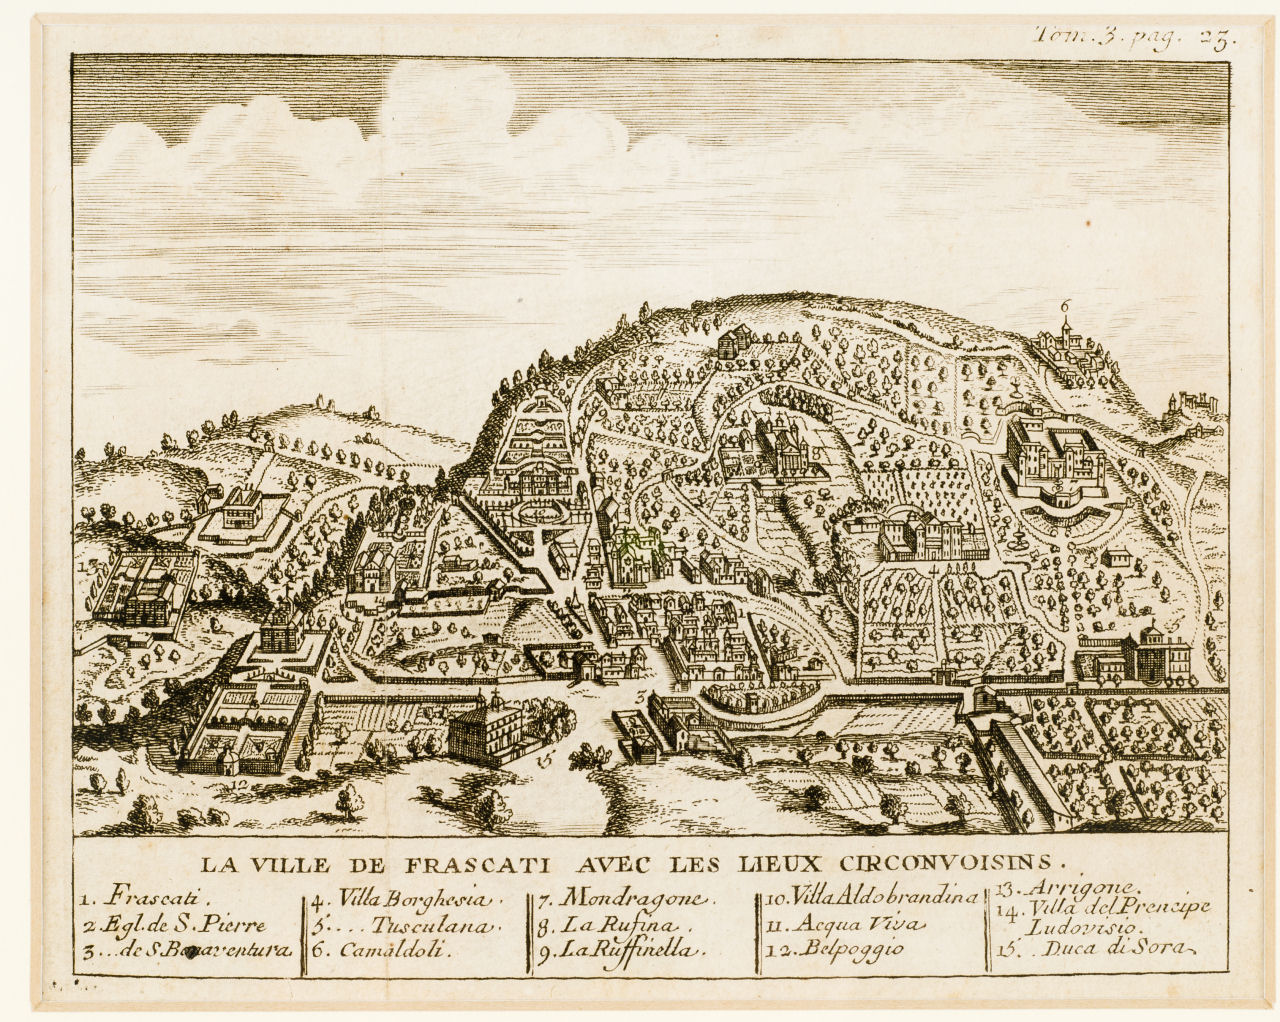 Tom. 3. pag. 23.
6
13
5
3
15
12
LA VILLE DE FRASCATI AVEC LES LIEUX CIRCONVOISINS.
1. Frascati.
2 Egl. de S. Pierre
3... de S. Bonaventura
4. Villa Borghesia.
5.... Tusculana.
6. Camaldoli.
7. Mondragone.
8. La Rufina.
9. La Ruffinella.
10. Villa Aldobrandina
11. Acqua Viva
12. Belpoggio
13. Arrigone.
14. Villa del Prencipe
Ludovisio.
15.. Duca di Sora